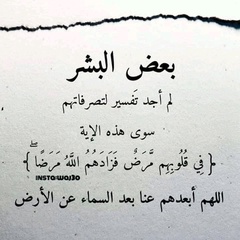 بعض البشر
لم أجد تَفسير لتصرفاتهم
سوى هذه الإية
{ فِي قُلُوبِهِم مَّرَضٌ فَزَادَهُمُ اللَّهُ مَرَضًا ۖ }
INSTA:WAJ30
اللهم أبعدهم عنا بعد السماء عن الأرض